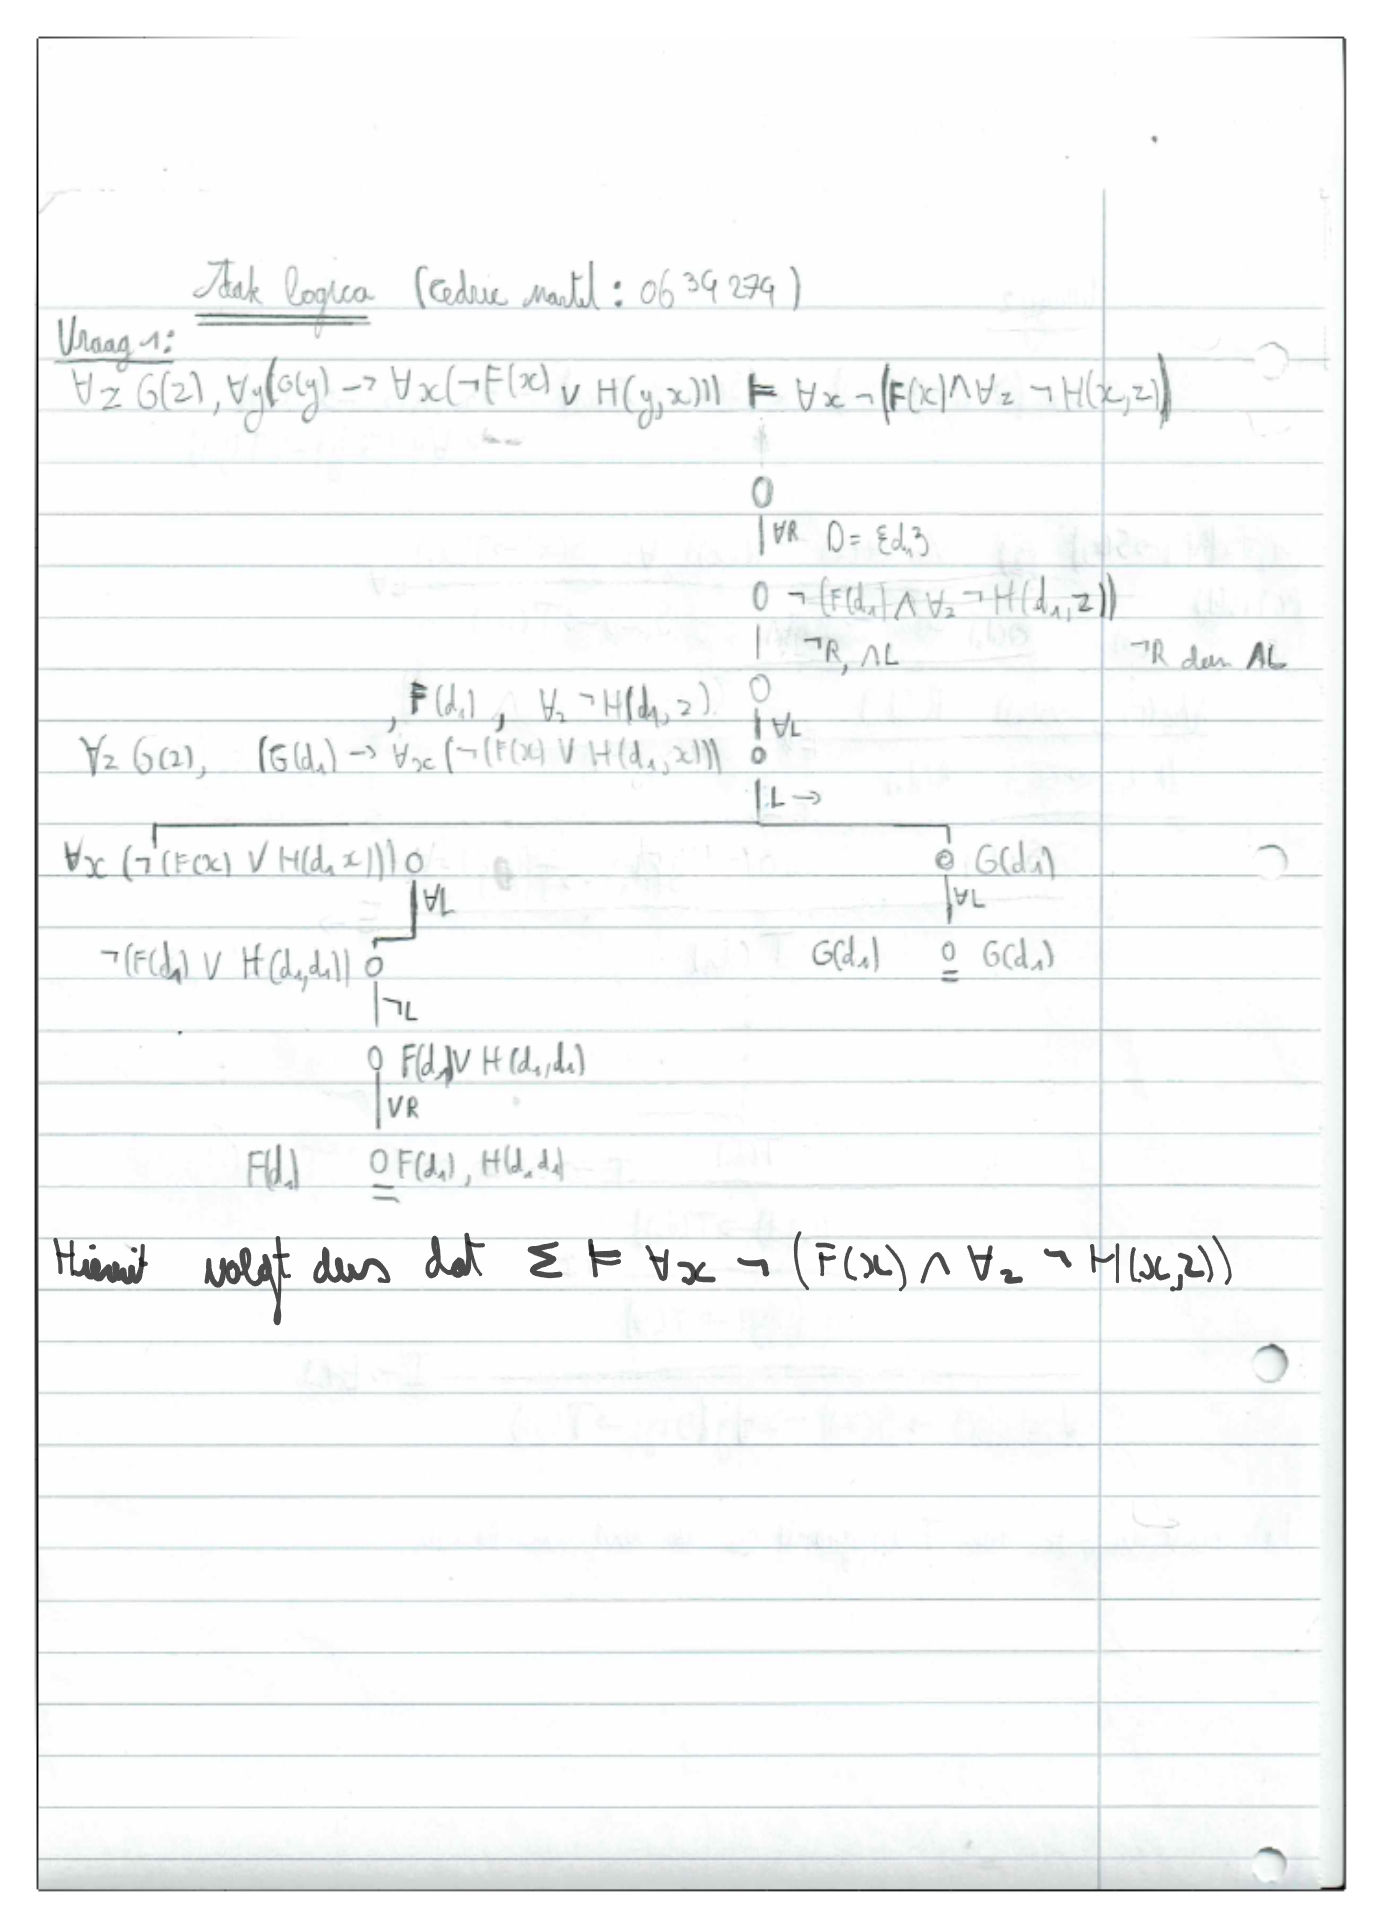 Taak logica (Cedric Martel: 0639279)
Vraag 1:
∀z G(z), ∀y(G(y) → ∀x(¬F(x) ∨ H(y,x))) ⊨ ∀x ¬(F(x) ∧ ∀z ¬H(x,z))
O
∀R D = {d₁}
O ¬(F(d₁) ∧ ∀z ¬H(d₁,z))
¬R, ∧L ¬R dan ∧L
, F(d₁) , ∀z ¬H(d₁,z) O
∀L
∀z G(z), (G(d₁) → ∀x (¬(F(x) ∨ H(d₁,x))) O
L →
∀x (¬(F(x) ∨ H(d₁x))) O O G(d₁)
∀L ∀L
¬(F(d₁) ∨ H(d₁,d₁)) O G(d₁) O G(d₁)
¬L
O F(d₁) ∨ H(d₁,d₁)
∨R
F(d₁) O F(d₁), H(d₁d₁)
Hieruit volgt dus dat Σ ⊨ ∀x ¬(F(x) ∧ ∀z ¬H(x,z))